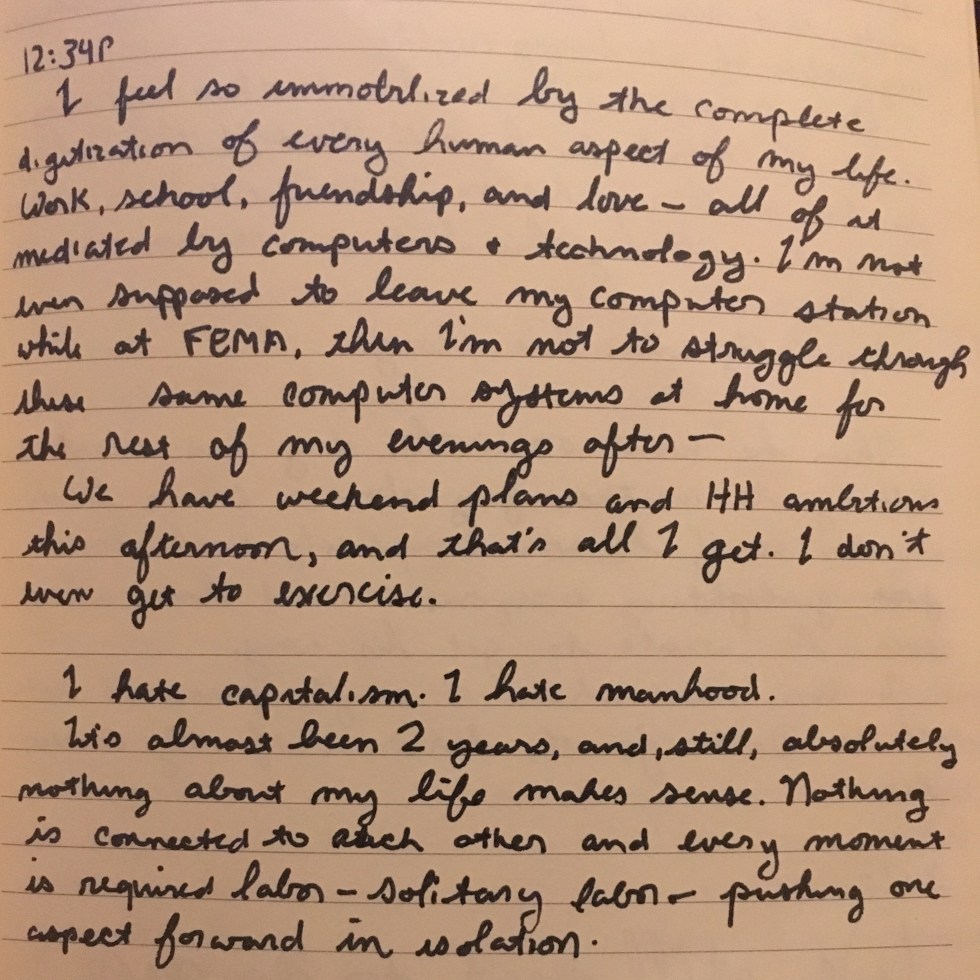 12:34P
I feel so immobilized by the complete
digitization of every human aspect of my life.
Work, school, friendship, and love – all of it
mediated by computers + technology. I'm not
even supposed to leave my computer station
while at FEMA, then I'm not to struggle through
these same computer systems at home for
the rest of my evenings after —
We have weekend plans and HH ambitions
this afternoon, and that's all I get. I don't
even get to exercise.
I hate capitalism. I hate manhood.
It's almost been 2 years, and, still, absolutely
nothing about my life makes sense. Nothing
is connected to each other and every moment
is required labor – solitary labor – pushing one
aspect forward in isolation.